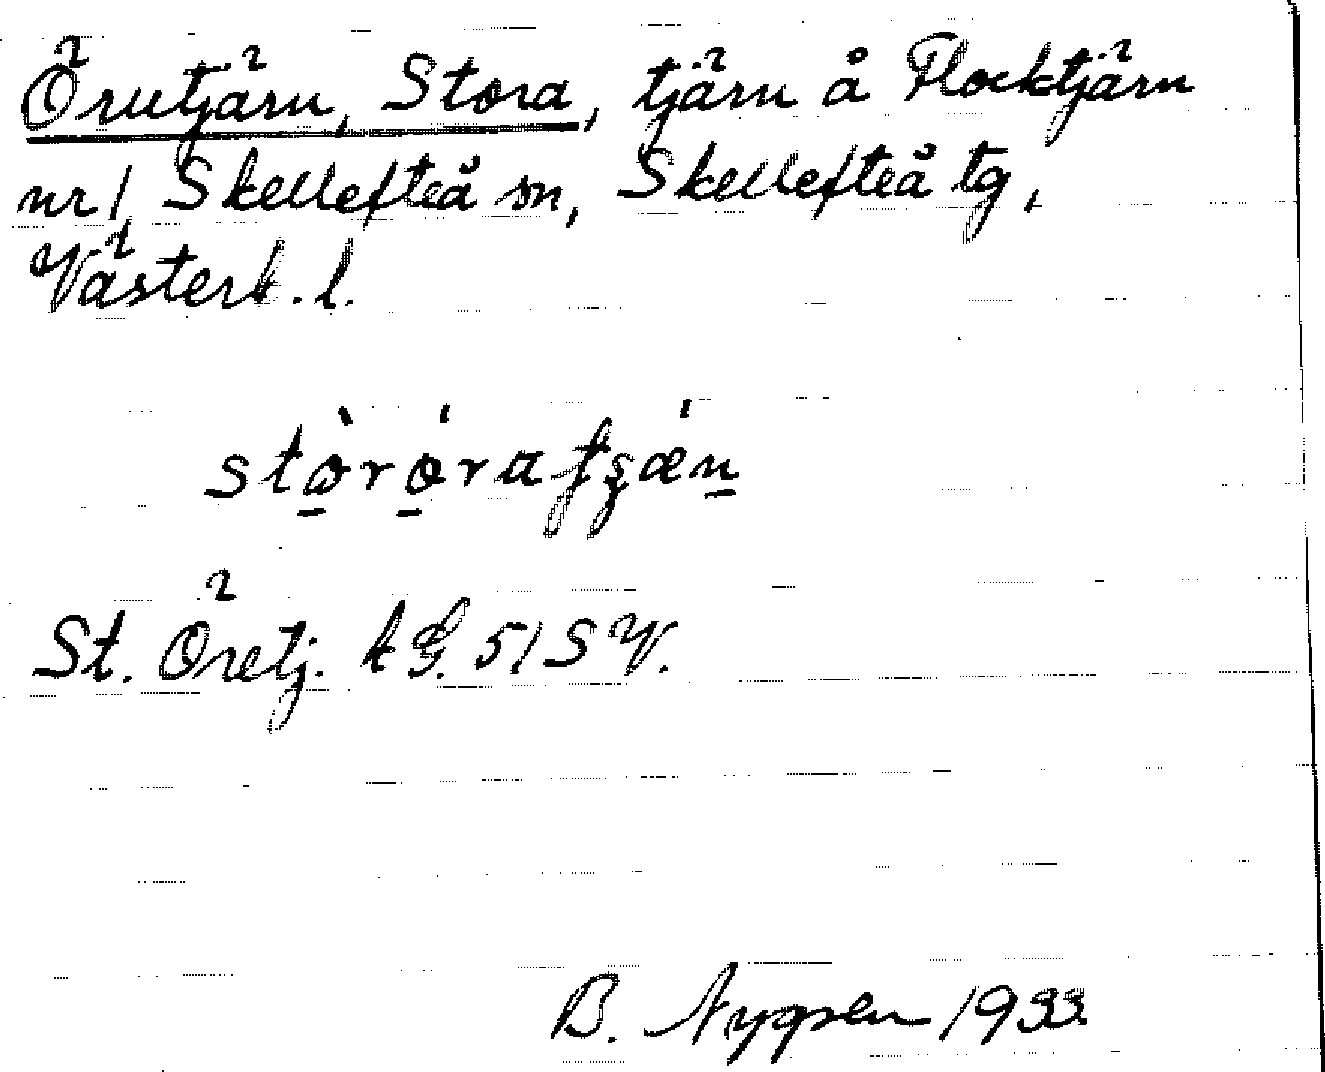 Örutjärn, Stora, tjärn å Flocktjärn
nr 1 Skellefteå sn, Skellefteå tg,
Västerb. l.
stòróratʒǽn
St. Öretj. kG. 51 SV.
B. 1933